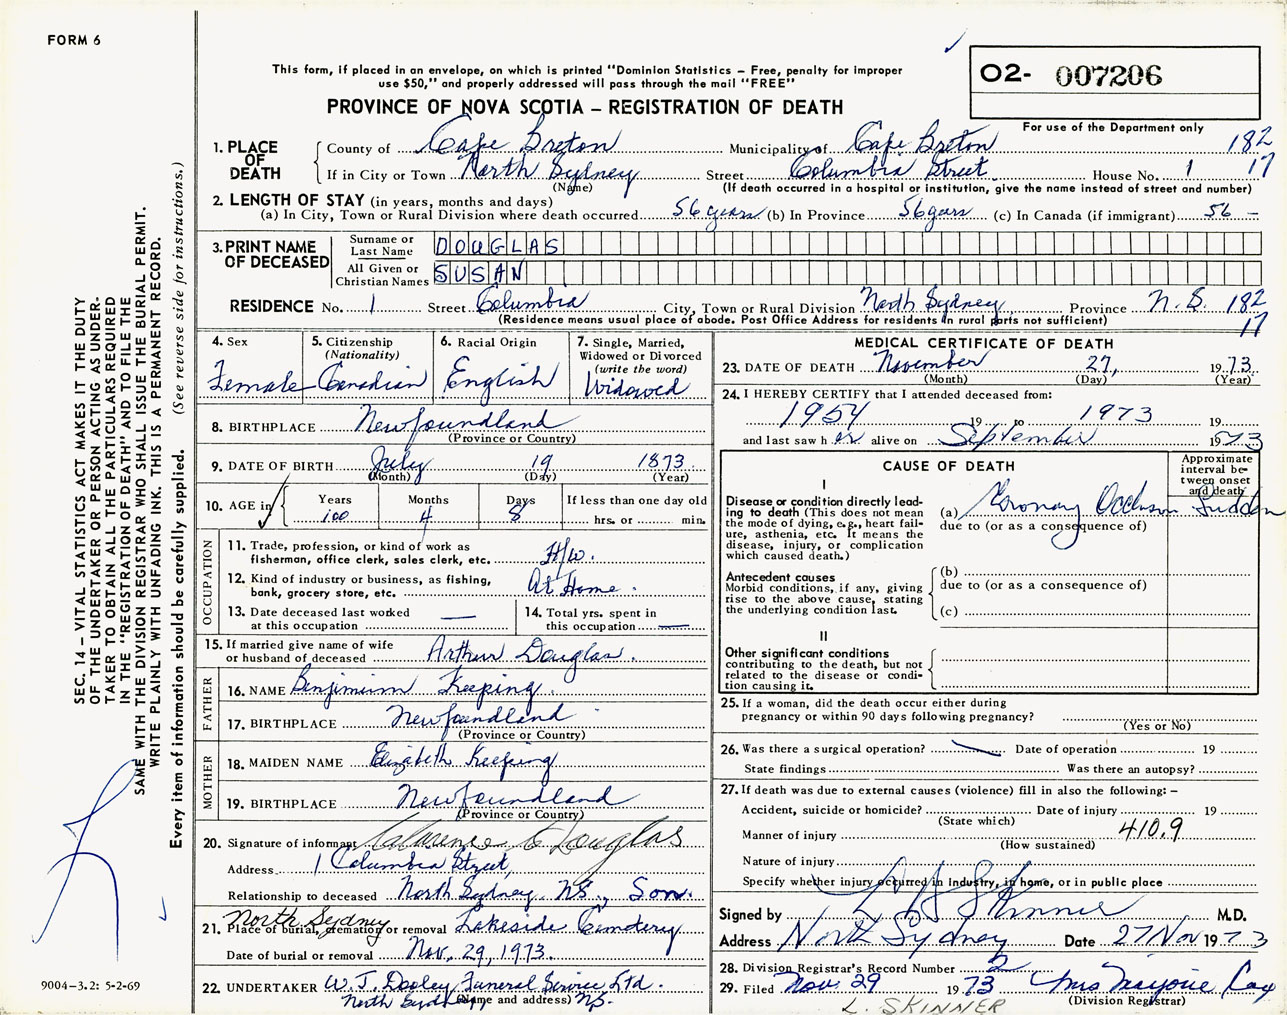 FORM 6
This form, if placed in an envelope, on which is printed "Dominion Statistics – Free, penalty for improper
use $50," and properly addressed will pass through the mail "FREE"
PROVINCE OF NOVA SCOTIA – REGISTRATION OF DEATH
02- 007206
For use of the Department only
SEC. 14 – VITAL STATISTICS ACT MAKES IT THE DUTY
OF THE UNDERTAKER OR PERSON ACTING AS UNDER-
TAKER TO OBTAIN ALL THE PARTICULARS REQUIRED
IN THE "REGISTRATION OF DEATH" AND TO FILE THE
SAME WITH THE DIVISION REGISTRAR WHO SHALL ISSUE THE BURIAL PERMIT.
WRITE PLAINLY WITH UNFADING INK. THIS IS A PERMANENT RECORD.
Every item of information should be carefully supplied. (See reverse side for instructions.)
1. PLACE OF DEATH County of Cape Breton Municipality of Cape Breton 182
If in City or Town North Sydney Street Columbia Street House No. 1 17
(Name) (If death occurred in a hospital or institution, give the name instead of street and number)
2. LENGTH OF STAY (in years, months and days)
(a) In City, Town or Rural Division where death occurred 56 years (b) In Province 56 years (c) In Canada (if immigrant) 56 –
3. PRINT NAME OF DECEASED Surname or Last Name DOUGLAS
All Given or Christian Names SUSAN
RESIDENCE No. 1 Street Columbia City, Town or Rural Division North Sydney Province N.S. 182
(Residence means usual place of abode. Post Office Address for residents in rural parts not sufficient) 17
4. Sex Female
5. Citizenship (Nationality) Canadian
6. Racial Origin English
7. Single, Married, Widowed or Divorced (write the word) Widowed
8. BIRTHPLACE Newfoundland
(Province or Country)
9. DATE OF BIRTH July 19 1873
(Month) (Day) (Year)
10. AGE in Years 100 Months 4 Days 8 If less than one day old hrs. or min.
OCCUPATION
11. Trade, profession, or kind of work as
fisherman, office clerk, sales clerk, etc. H/w.
12. Kind of industry or business, as fishing,
bank, grocery store, etc. At Home.
13. Date deceased last worked
at this occupation —
14. Total yrs. spent in
this occupation —
15. If married give name of wife
or husband of deceased Arthur Douglas.
FATHER
16. NAME Benjimium Keeping.
17. BIRTHPLACE Newfoundland
(Province or Country)
MOTHER
18. MAIDEN NAME Elizabeth Keeping
19. BIRTHPLACE Newfoundland
(Province or Country)
20. Signature of informant Clarence E Douglas
Address 1 Columbia Street,
Relationship to deceased North Sydney, NS., Son.
21. Place of burial, cremation or removal North Sydney Lakeside Cemetery
Date of burial or removal Nov. 29, 1973.
22. UNDERTAKER W. J. Dooley Funeral Service Ltd.
North Sydney NS.
(Name and address)
9004-3.2: 5-2-69
MEDICAL CERTIFICATE OF DEATH
23. DATE OF DEATH November 27, 1973.
(Month) (Day) (Year)
24. I HEREBY CERTIFY that I attended deceased from:
1954 19 to 1973 19
and last saw her alive on September 1973
CAUSE OF DEATH
Approximate interval between onset and death
I
Disease or condition directly lead-
ing to death (This does not mean
the mode of dying, e.g., heart fail-
ure, asthenia, etc. It means the
disease, injury, or complication
which caused death.)
(a) Coronary Occlusion Sudden
due to (or as a consequence of)
Antecedent causes
Morbid conditions, if any, giving
rise to the above cause, stating
the underlying condition last.
(b)
due to (or as a consequence of)
(c)
II
Other significant conditions
contributing to the death, but not
related to the disease or condi-
tion causing it.
25. If a woman, did the death occur either during
pregnancy or within 90 days following pregnancy?
(Yes or No)
26. Was there a surgical operation? — Date of operation 19
State findings Was there an autopsy?
27. If death was due to external causes (violence) fill in also the following: –
Accident, suicide or homicide? Date of injury 19
(State which)
Manner of injury 410.9
(How sustained)
Nature of injury
Specify whether injury occurred in Industry, in home, or in public place
Signed by L Skinner M.D.
Address North Sydney Date 27 Nov 1973
28. Division Registrar's Record Number 2
29. Filed Nov. 29 1973 Mrs Marjorie Cox
(Division Registrar)
L. SKINNER